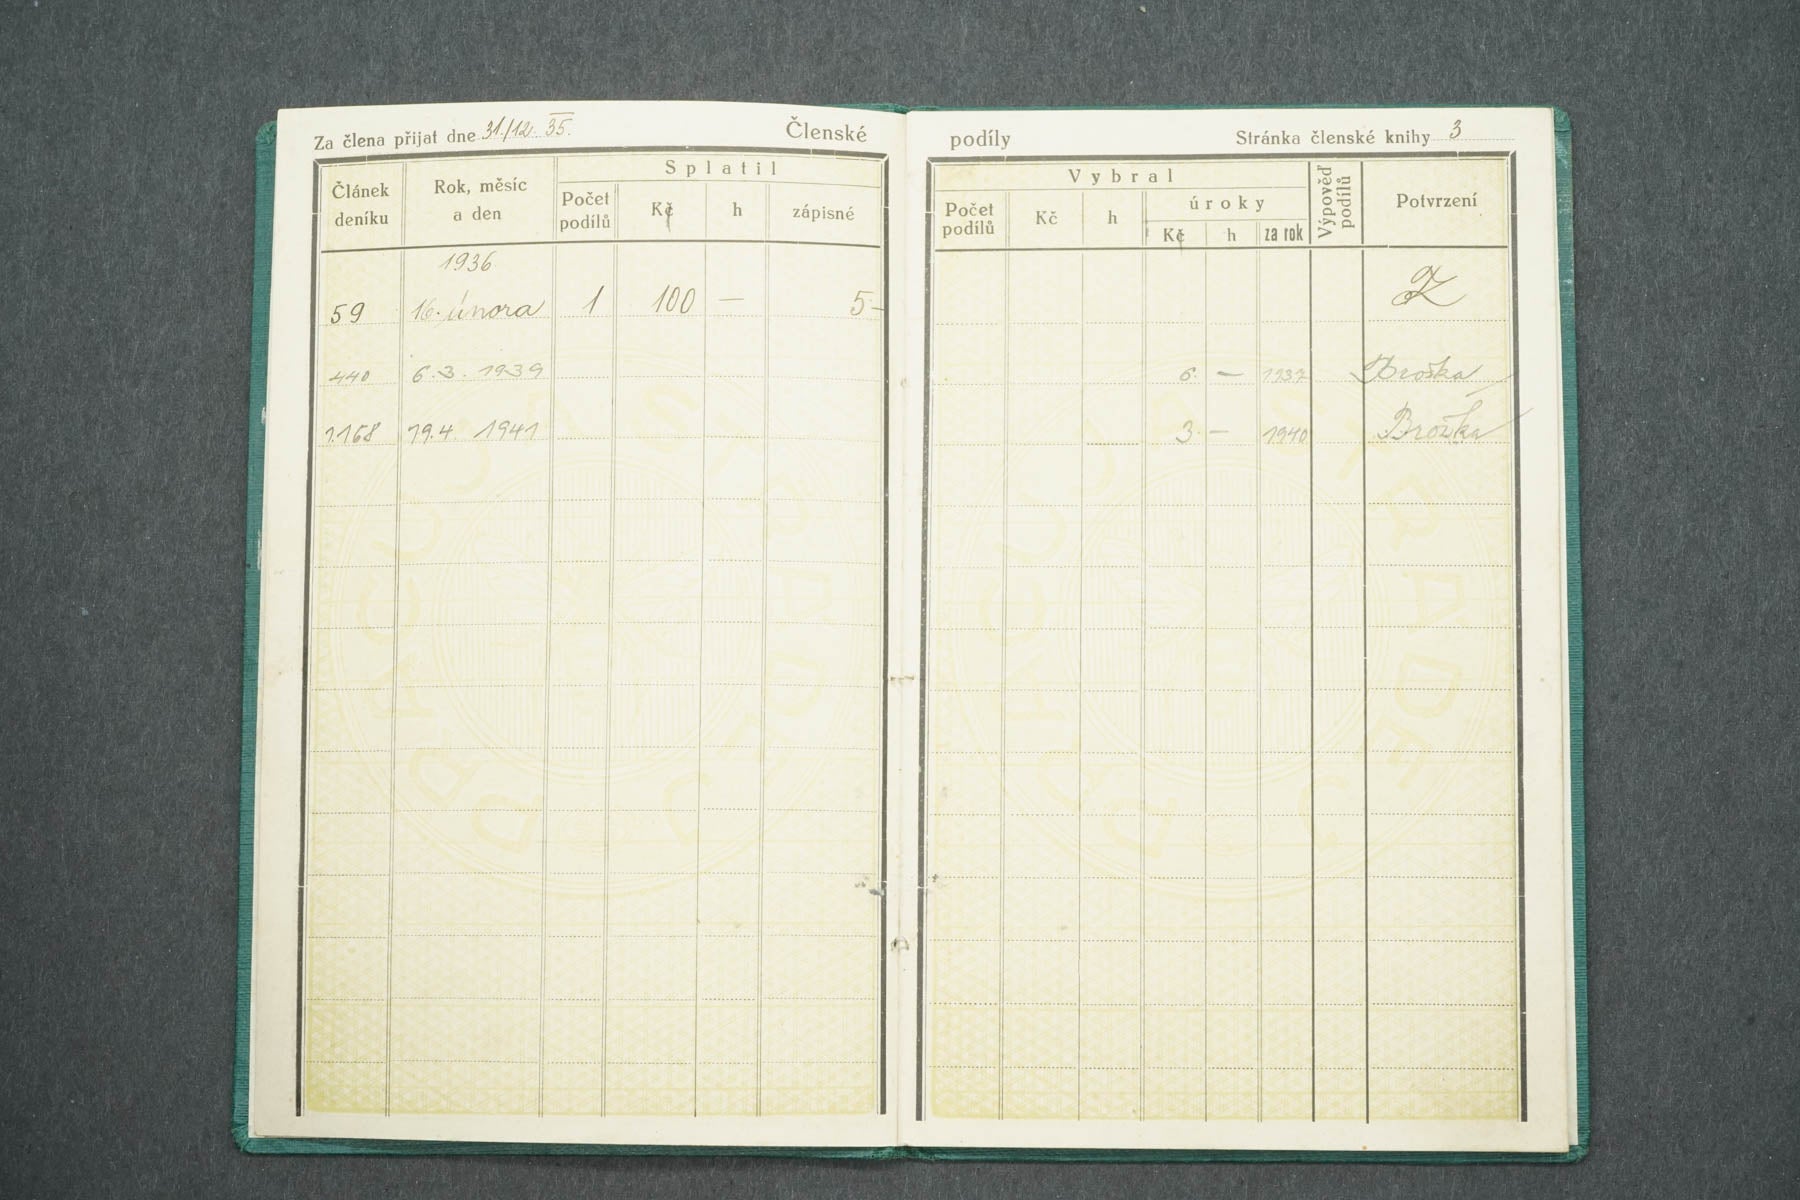 Za člena přijat dne 31./12. 35. Členské podíly Stránka členské knihy 3
Splatil
Vybral
Článek deníku
Rok, měsíc a den
Počet podílů
Kč
h
zápisné
Počet podílů
Kč
h
úroky
Kč
h
za rok
Výpověď podílů
Potvrzení
1936
59 16. února 1 100 — 5-
440 6.3. 1939 6. — 1937 Broška
1.168 19.4. 1941 3 - 1940 Broška